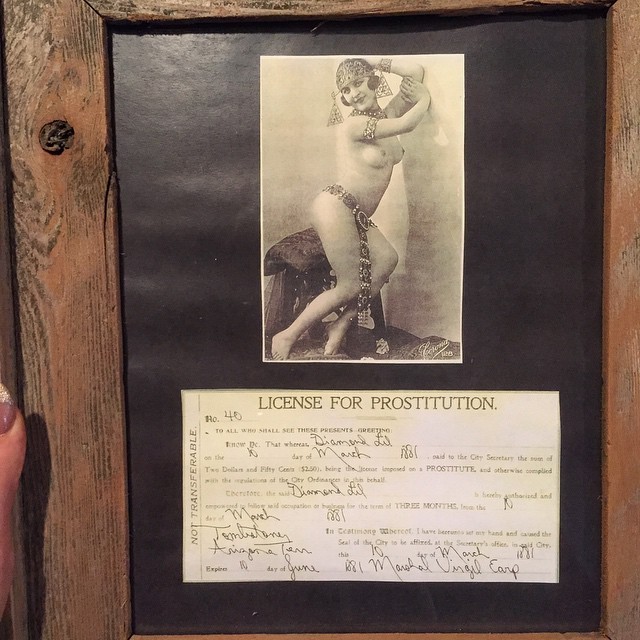 Corona
LICENSE FOR PROSTITUTION.
No. 40
TO ALL WHO SHALL SEE THESE PRESENTS GREETING:
Know Ye. That whereas, Diamond Lil
on the 10 day of March 1881, said to the City Secretary the sum of
Two Dollars and Fifty Cents ($2.50), being the license imposed on a PROSTITUTE, and otherwise complied
with the regulations of the City Ordinances in this behalf.
Therefore, the said Diamond Lil is hereby authorized and
empowered to follow said occupation or business for the term of THREE MONTHS, from the 10
day of March 1881
In Testimony Whereof, I have hereunto set my hand and caused the
Seal of the City to be affixed, at the Secretary's office, in said City,
Tombstone,
Arizona Terr this 10 day of March 1881
Expires 10 day of June 1881 Marshal Virgil Earp
NOT TRANSFERABLE.